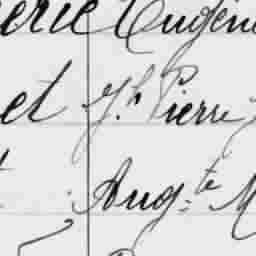 erie Eugène
et Jh. Pierre
t Aug.te M